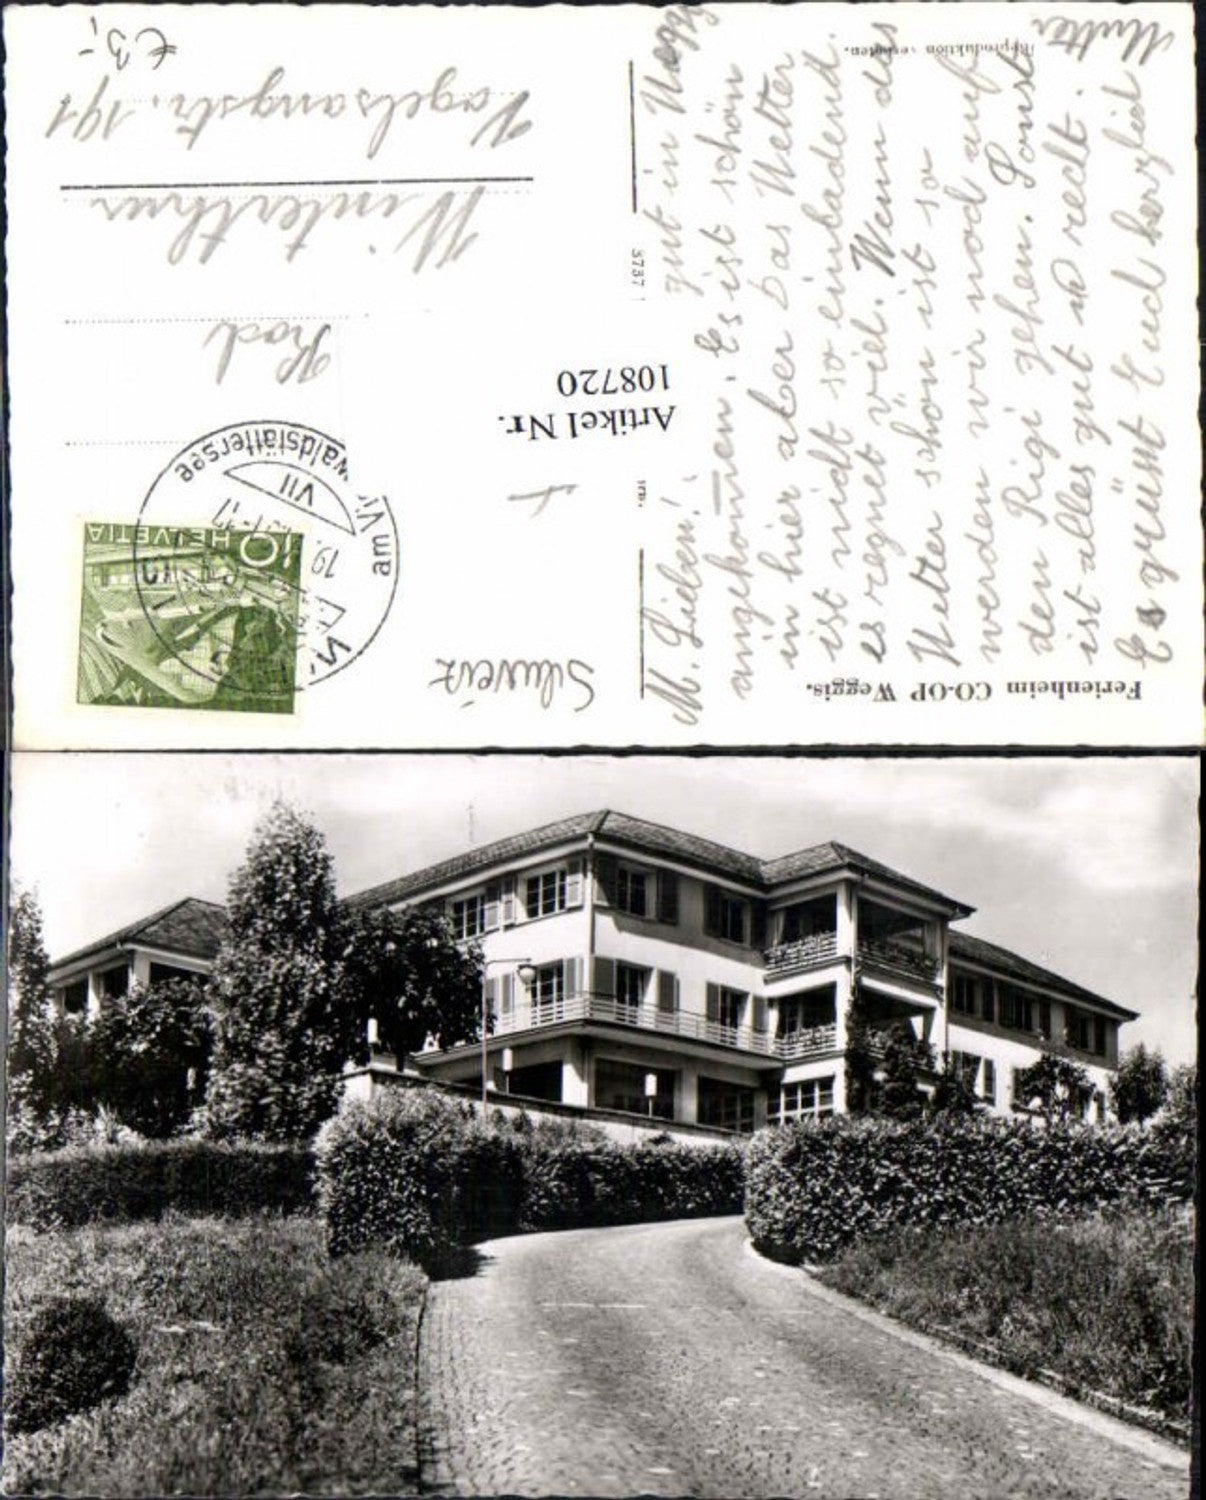 Ferienheim CO-OP Weggis.
M. Lieben! gut in Weggis
angekommen. Es ist schön
in hier aber Das Wetter
ist nicht so einladend.
es regnet viel. Wenn das
Wetter schön ist so
werden wir noch auf
den Rigi gehen. Sonst
ist alles gut u recht.
Es grüsst Euch herzlich
Mutter
Reproduktion verboten.
3737
Artikel Nr.
108720
Schweiz
HELVETIA
10
am Vierwaldstättersee
VII
Winterthur
Vogelsangstr. 191
€ 3,-